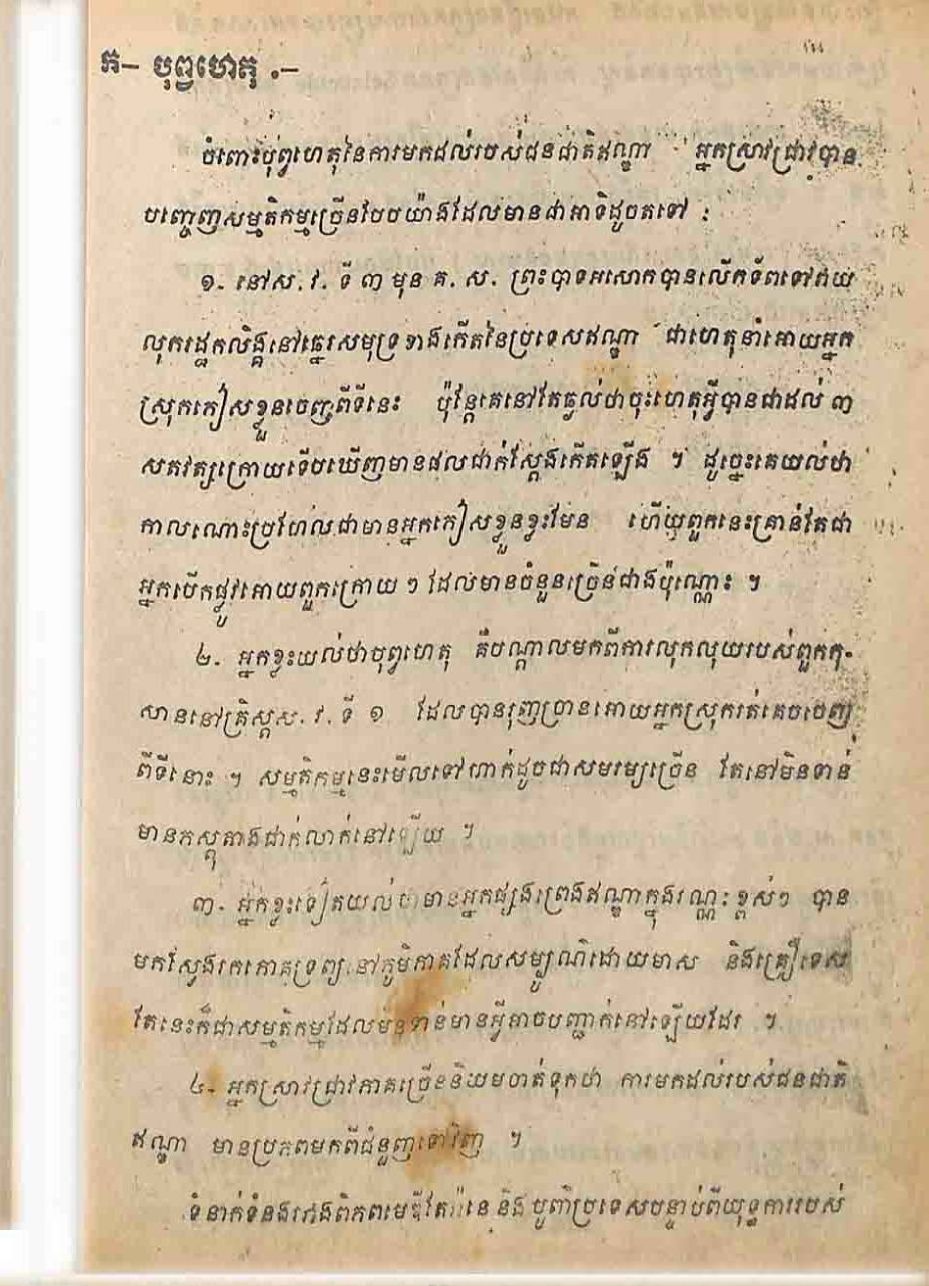 ក- បុព្វហេតុ .-
ចំពោះបុព្វហេតុនៃការមកដល់របស់ជនជាតិឥណ្ឌា អ្នកស្រាវជ្រាវបាន
បញ្ចេញសម្មតិកម្មច្រើនបែបយ៉ាងដែលមានជាអាទិដូចតទៅ :
១. នៅស.វ. ទី ៣ មុន គ.ស. ព្រះបាទអសោកបានលើកទ័ពទៅវាយ
លុករដ្ឋកលិង្គនៅឆ្នេរសមុទ្រខាងកើតនៃប្រទេសឥណ្ឌា ជាហេតុនាំអោយអ្នក
ស្រុកភៀសខ្លួនចេញពីទីនេះ ប៉ុន្តែគេនៅតែឆ្ងល់ថាចុះហេតុអ្វីបានជាដល់ ៣
សតវត្សក្រោយទើបឃើញមានផលជាក់ស្តែងកើតឡើង ។ ដូច្នេះគេយល់ថា
កាលណោះប្រហែលជាមានអ្នកភៀសខ្លួនខ្លះមែន ហើយពួកនេះគ្រាន់តែជា
អ្នកបើកផ្លូវអោយពួកក្រោយៗ ដែលមានចំនួនច្រើនជាងប៉ុណ្ណោះ ។
២. អ្នកខ្លះយល់ថាបុព្វហេតុ គឺបណ្តាលមកពីការលុកលុយរបស់ពួកកុ-
សាននៅគ្រិស្តស.វ. ទី ១ ដែលបានរុញច្រានអោយអ្នកស្រុករត់គេចចេញ
ពីទីនោះ ។ សម្មតិកម្មនេះមើលទៅហាក់ដូចជាសមរម្យច្រើន តែនៅមិនទាន់
មានភស្តុតាងជាក់លាក់នៅឡើយ ។
៣. អ្នកខ្លះទៀតយល់ថាមានអ្នកផ្សងព្រេងឥណ្ឌាក្នុងវណ្ណៈខ្ពស់ៗ បាន
មកស្វែងរកភោគទ្រព្យនៅភូមិភាគដែលសម្បូណ៌ដោយមាស និងគ្រឿទេស
តែនេះក៏ជាសម្មតិកម្មដែលមិនទាន់មានអ្វីអាចបញ្ជាក់នៅឡើយដែរ ។
៤. អ្នកស្រាវជ្រាវភាគច្រើននិយមចាត់ទុកថា ការមកដល់របស់ជនជាតិ
ឥណ្ឌា មានប្រភពមកពីជំនួញទៅវិញ ។
ទំនាក់ទំនងរវាងពិភពមេឌីតែរ៉ានេ និង បូញ៌ាប្រទេសបន្ទាប់ពីយុទ្ធការរបស់